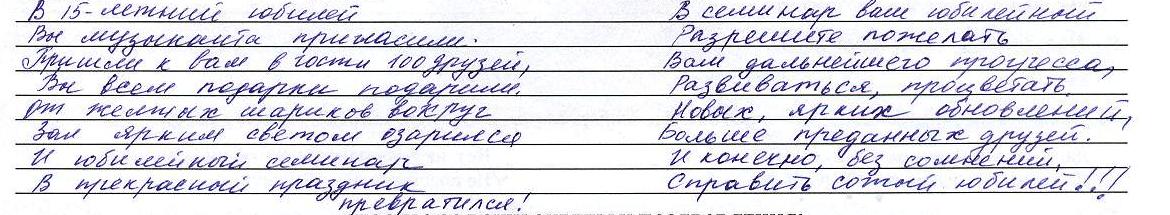 В 15-летний юбилей
Вы музыканта пригласили.
Пришли к вам в гости 100 друзей,
Вы всем подарки подарили.
От желтых шариков вокруг
Зал ярким светом озарился
И юбилейный семинар
В прекрасный праздник
превратился!
В семинар ваш юбилейный
Разрешите пожелать
Вам дальнейшего прогресса,
Развиваться, процветать.
Новых, ярких обновлений,
Больше преданных друзей.
И конечно, без сомнений,
Справить сотый юбилей!!!